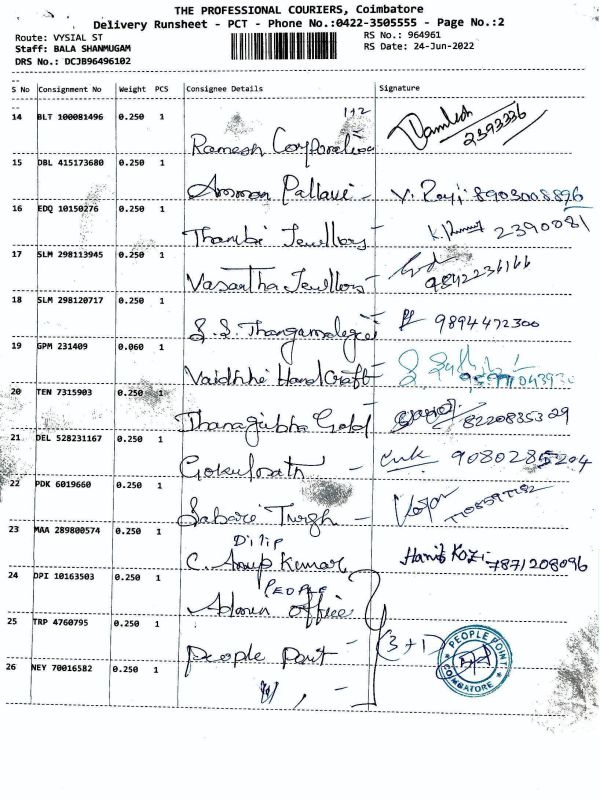 THE PROFESSIONAL COURIERS, Coimbatore
Delivery Runsheet - PCT - Phone No.:0422-3505555 - Page No.:2
Route: VYSIAL ST
RS No.: 964961
Staff: BALA SHANMUGAM
RS Date: 24-Jun-2022
DRS No.: DCJB96496102
S No Consignment No Weight PCS Consignee Details Signature
112
14 BLT 100081496 0.250 1 Ramesh Corporation 2393336
15 DBL 415173680 0.250 1 Amman Pallavi - V. Royi 8903008896
16 EDQ 10150276 0.250 1 Thambi Jewellers 2390081
17 SLM 298113945 0.250 1 Vasantha Jewellers - 9842236166
18 SLM 298120717 0.250 1 S.S. Thangamaligai 9894472300
19 GPM 231409 0.060 1 Vaidhhi HandCraft -
20 TEN 7315903 0.250 1 Gold 8220835329
21 DEL 528231167 0.250 1 - 9080285204
22 PDK 6019660 0.250 1 Sabari -
Dilip
23 MAA 289800574 0.250 1 C. Anup Kumar 7871208096
PEOPLE
24 DPI 10163503 0.250 1 office
25 TRP 4760795 0.250 1 People Point - (3+1)
PEOPLE POINT
COIMBATORE
26 NEY 70016582 0.250 1 -